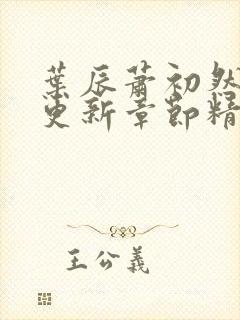 葉辰蕭初然
更新章節精
王公義